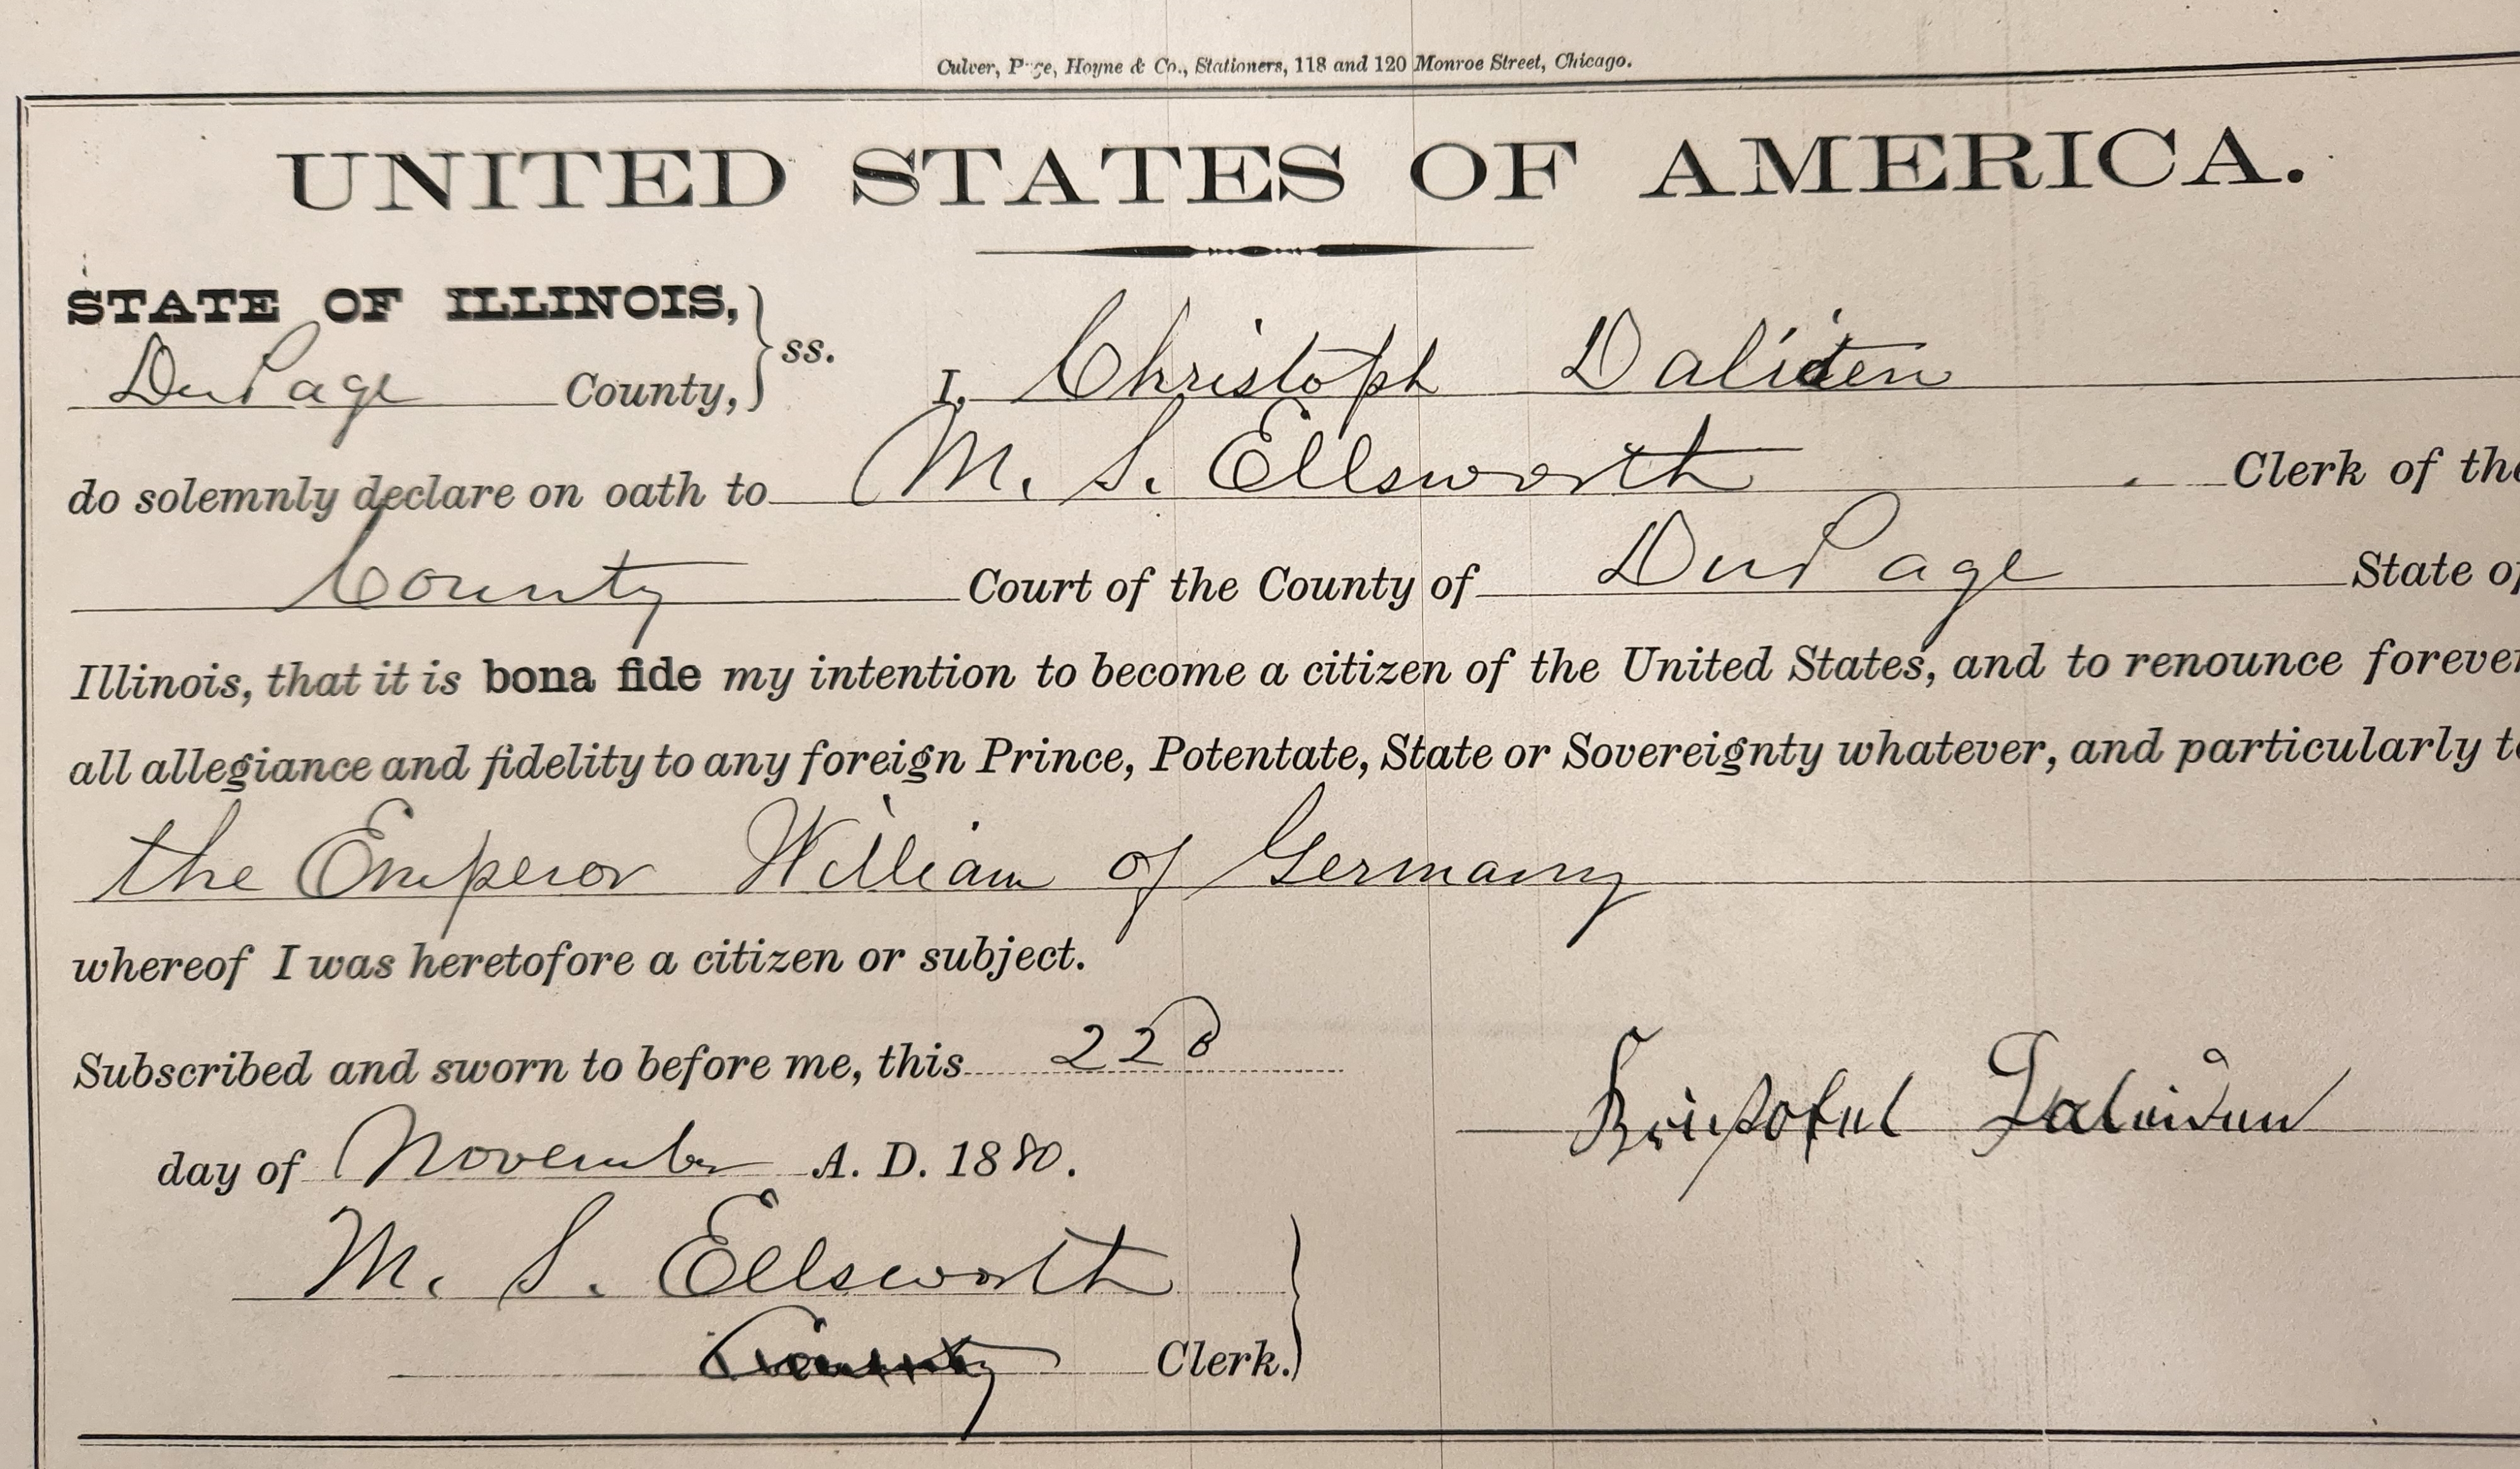 Culver, Page, Hoyne & Co., Stationers, 118 and 120 Monroe Street, Chicago.
UNITED STATES OF AMERICA.
STATE OF ILLINOIS,
DuPage County, } ss. I, Christoph Daliden
do solemnly declare on oath to M. S. Ellsworth Clerk of the
County Court of the County of DuPage State of
Illinois, that it is bona fide my intention to become a citizen of the United States, and to renounce forever
all allegiance and fidelity to any foreign Prince, Potentate, State or Sovereignty whatever, and particularly to
the Emperor William of Germany
whereof I was heretofore a citizen or subject.
Subscribed and sworn to before me, this 22d
day of November A. D. 1880.
M. S. Ellsworth
County Clerk.